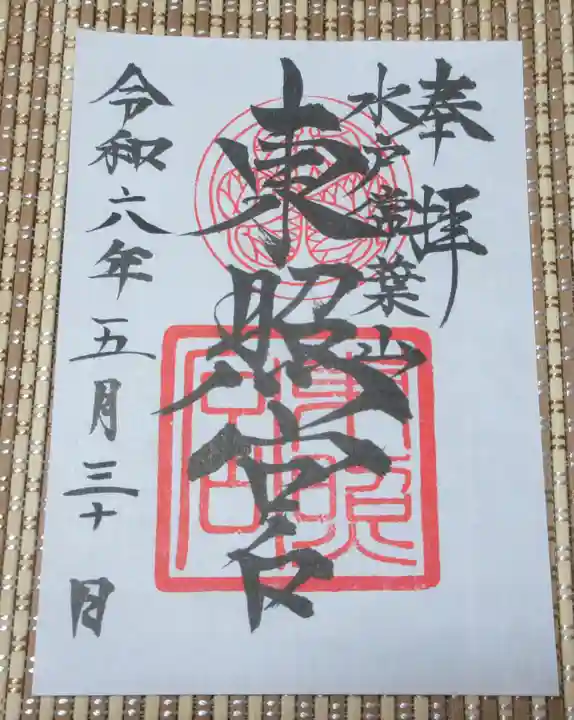 奉拝
水戸常葉山
東照宮
令和六年五月三十日